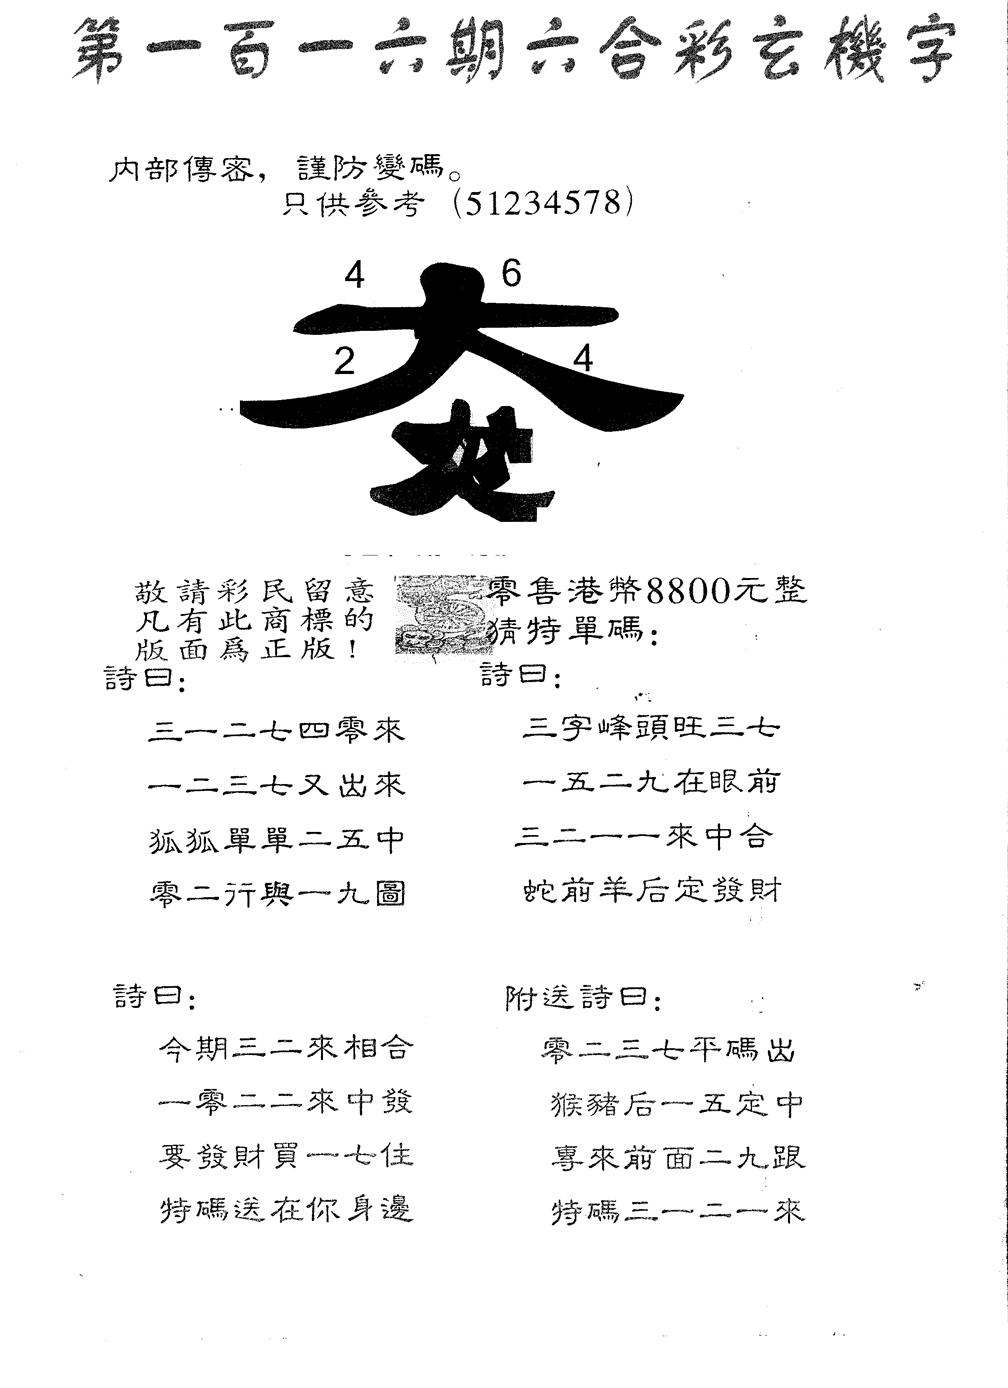 第一百一六期六合彩玄機字
内部傳密，謹防變碼。
只供參考（51234578）
4 6
2 4
敬請彩民留意
凡有此商標的
版面爲正版！
零售港幣8800元整
猜特單碼：
詩曰：
三一二七四零來
一二三七又出來
狐狐單單二五中
零二行與一九圖
詩曰：
三字峰頭旺三七
一五二九在眼前
三二一一來中合
蛇前羊后定發財
詩曰：
今期三二來相合
一零二二來中發
要發財買一七住
特碼送在你身邊
附送詩曰：
零二三七平碼出
猴豬后一五定中
專來前面二九跟
特碼三一二一來